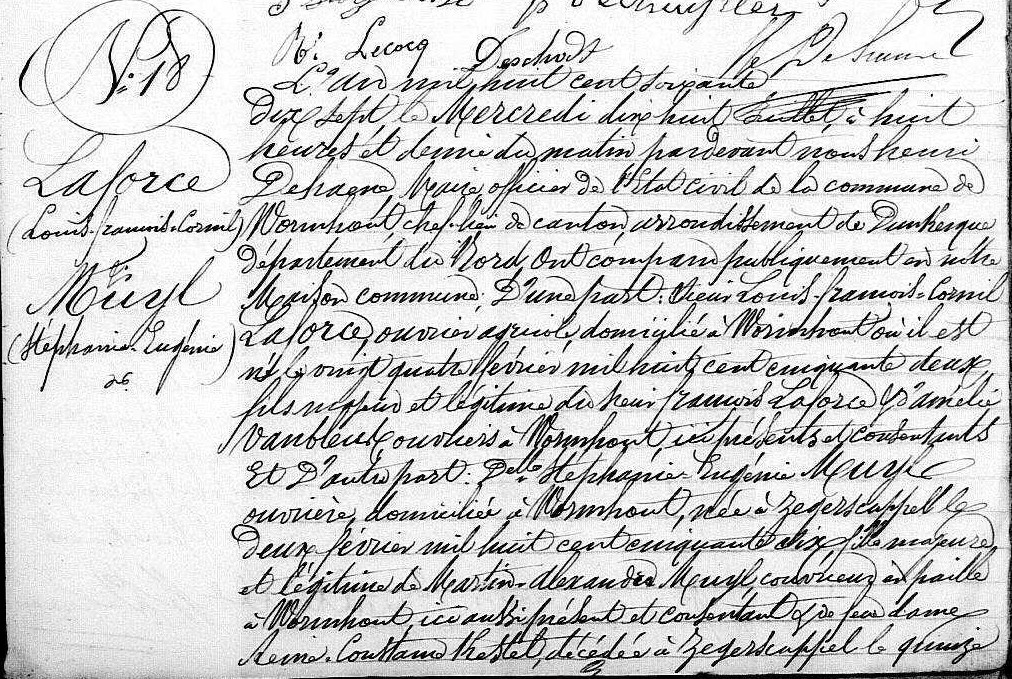 Lecocq Deschodt
N.° 18
L'an mil huit cent soixante
dix sept le Mercredi dix huit Juillet, à huit
heures et demie du matin pardevant nous henri
Dehaene Maire officier de l'Etat civil de la commune de
Laforce
(Louis-françois-Cornil)
Wormhout, chef-lieu de canton, arrondissement de Dunkerque
département du Nord, Ont comparu publiquement en notre
Maison commune: D'une part: Sieur Louis-françois-Cornil
Meuyl
(Stéphanie-Eugénie)
Laforce, ouvrier agricole, domicilié à Wormhout où il est
né le vingt quatre février mil huit cent cinquante deux,
fils majeur et légitime du sieur françois Laforce & d'amélie
ouvriers à Wormhout, ici présents et consentants
Et D'autre part: Delle Stéphanie-Eugénie Meuyl
ouvrière, domiciliée à Wormhout, née à Zegerscappel le
deux février mil huit cent cinquante six, fille majeure
et légitime de Martin-Alexandre Meuyl couvreur en paille
à Wormhout, ici aussi présent et consentant & de feue dame
Reine-Constance décédée à Zegerscappel le quinze